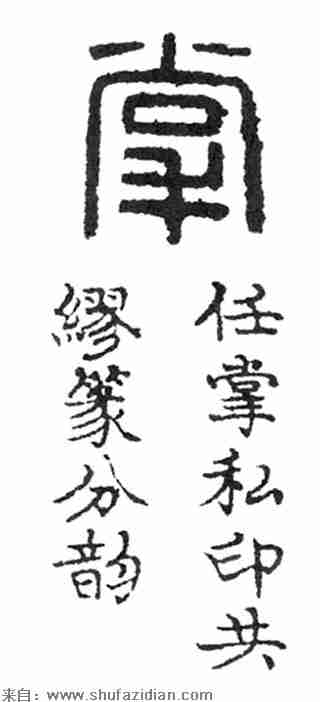 掌
任掌私印共
繆篆分韵
来自：www.shufazidian.com